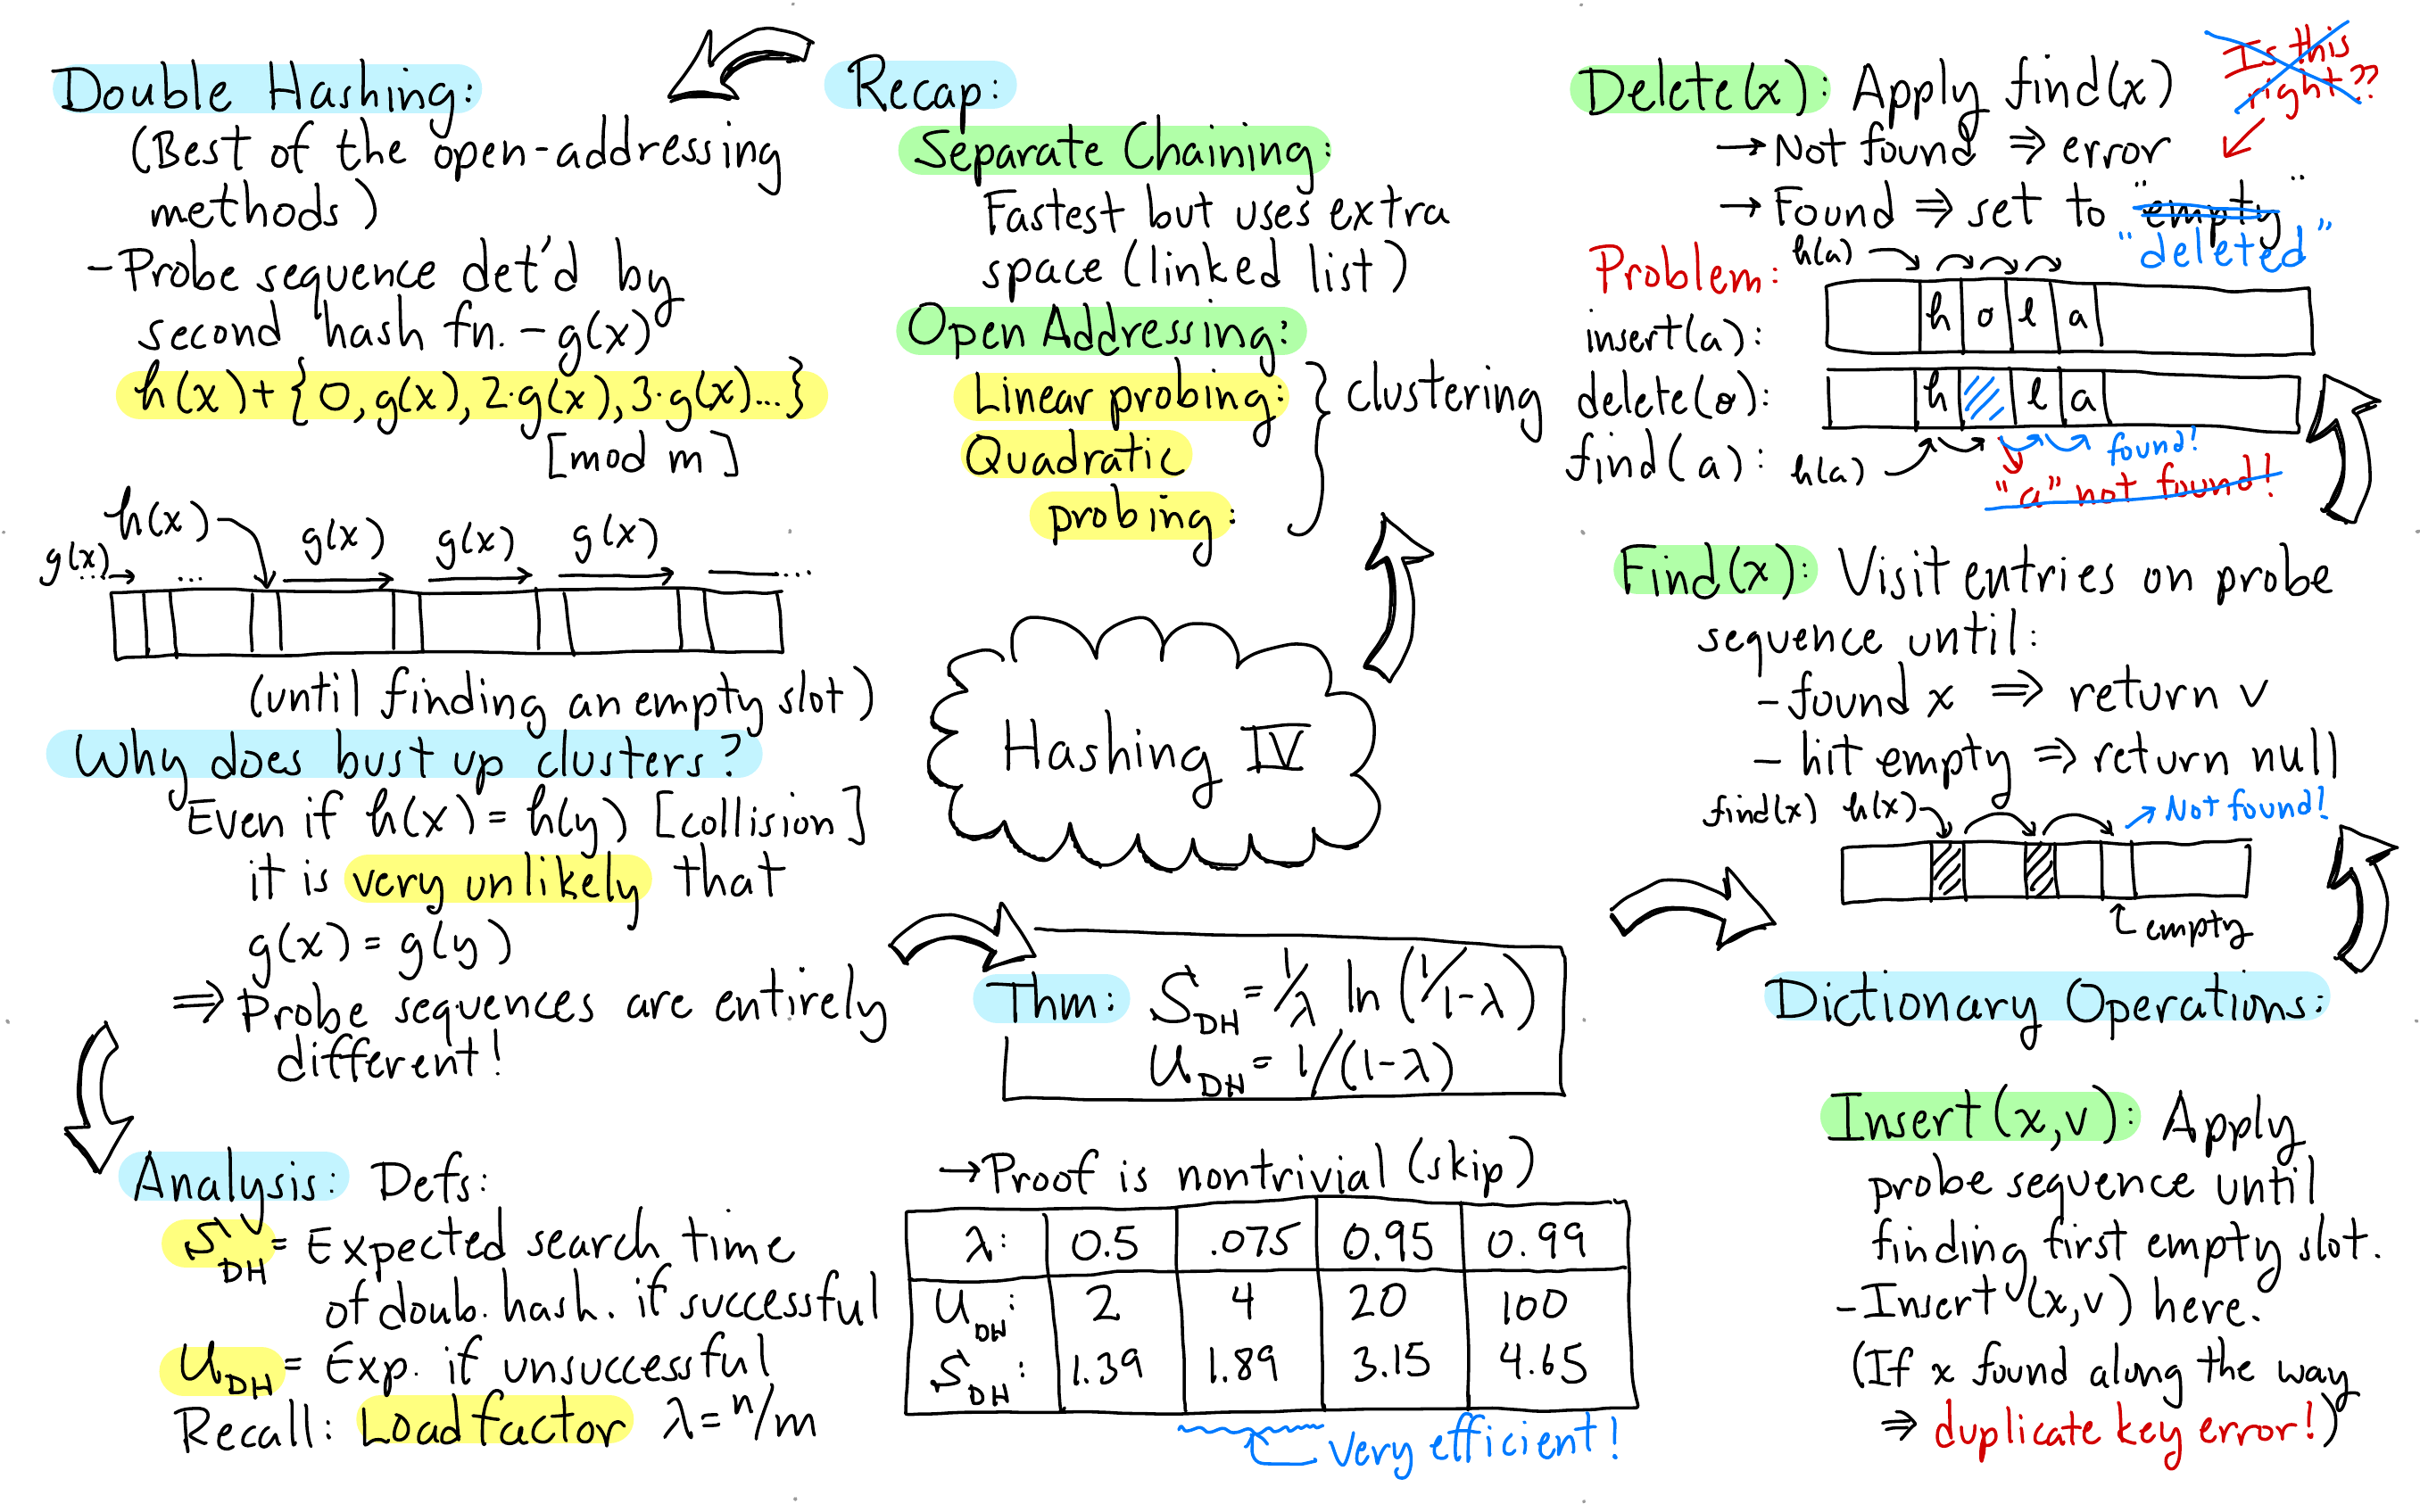 Hashing IV
Recap:
Separate Chaining:
Fastest but uses extra
space (linked list)
Open Addressing:
Linear probing:
Quadratic
probing:
clustering
Double Hashing:
(Best of the open-addressing
methods)
- Probe sequence det'd by
second hash fn. - g(x)
h(x) + {0, g(x), 2·g(x), 3·g(x)...}
[mod m]
h(x)
g(x) ... g(x) g(x) g(x) ...
(until finding an empty slot)
Why does bust up clusters?
Even if h(x) = h(y) [collision]
it is very unlikely that
g(x) = g(y)
⇒ Probe sequences are entirely
different!
Analysis: Defs:
S_DH = Expected search time
of doub. hash. if successful
U_DH = Exp. if unsuccessful
Recall: Load factor λ = n/m
Thm: S_DH = 1/λ ln (1/1-λ)
U_DH = 1/(1-λ)
→ Proof is nontrivial (skip)
λ: 0.5 .075 0.95 0.99
U_DH: 2 4 20 100
S_DH: 1.39 1.89 3.15 4.65
very efficient!
Dictionary Operations:
Insert(x,v): Apply
probe sequence until
finding first empty slot.
- Insert (x,v) here.
(If x found along the way
⇒ duplicate key error!)
Find(x): Visit entries on probe
sequence until:
- found x ⇒ return v
- hit empty ⇒ return null
find(x) h(x) → Not found!
empty
Delete(x): Apply find(x)
→ Not found ⇒ error
→ Found ⇒ set to "empty"
"deleted"
Is this
right??
Problem: h(a)
insert(a): h o l a
delete(o): h l a
find(a): h(a) found!
"a" not found!